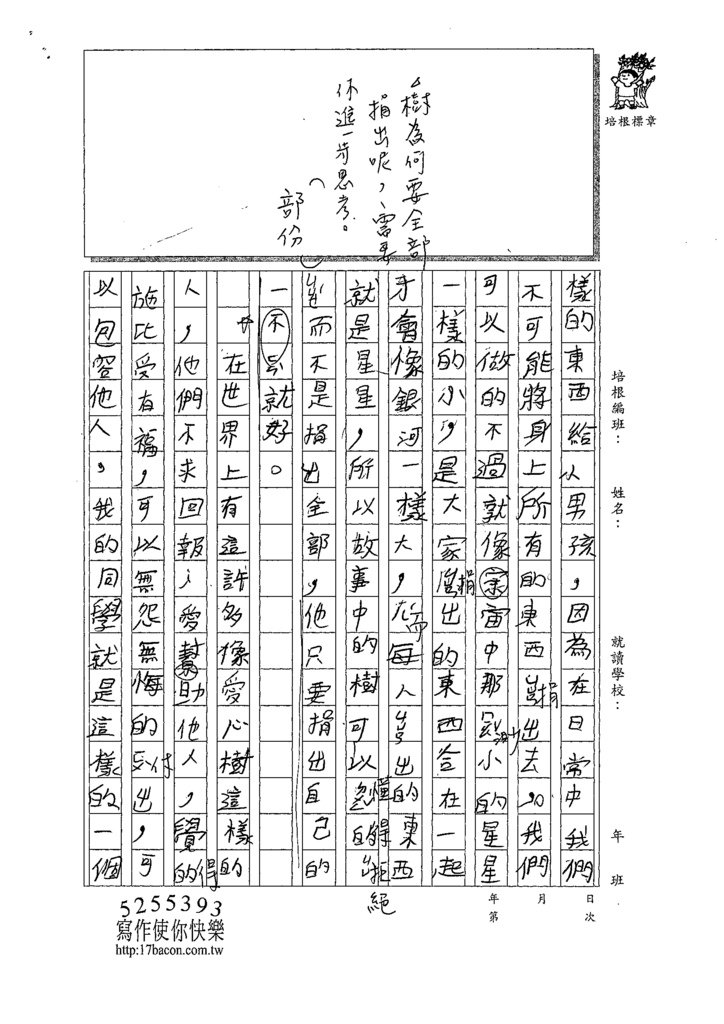 培根標章
△樹為何要全部
捐出呢，需要
你進一步思考。
部份
樣的東西給以男孩，因為在日常中我們
不可能將身上所有的東西捐出去，我們
可以做的不過就像宇宙中那渺小的星星
一樣的小，是大家捐出的東西合在一起
才會像銀河一樣大，而每人出的東西
就是星星，所以故事中的樹可以懂得拒絕
而不是捐出全部，他只要捐出自己的
一不就好。
在世界上有這許多像愛心樹這樣的
人，他們不求回報，愛幫助他人，覺得
施比受有福，可以無怨無悔的付出，可
以包容他人，我的同學就是這樣的一個
培根編班：
姓名：
就讀學校：
年 班
年 月 日
第 次
5255393
寫作使你快樂
http:17bacon.com.tw